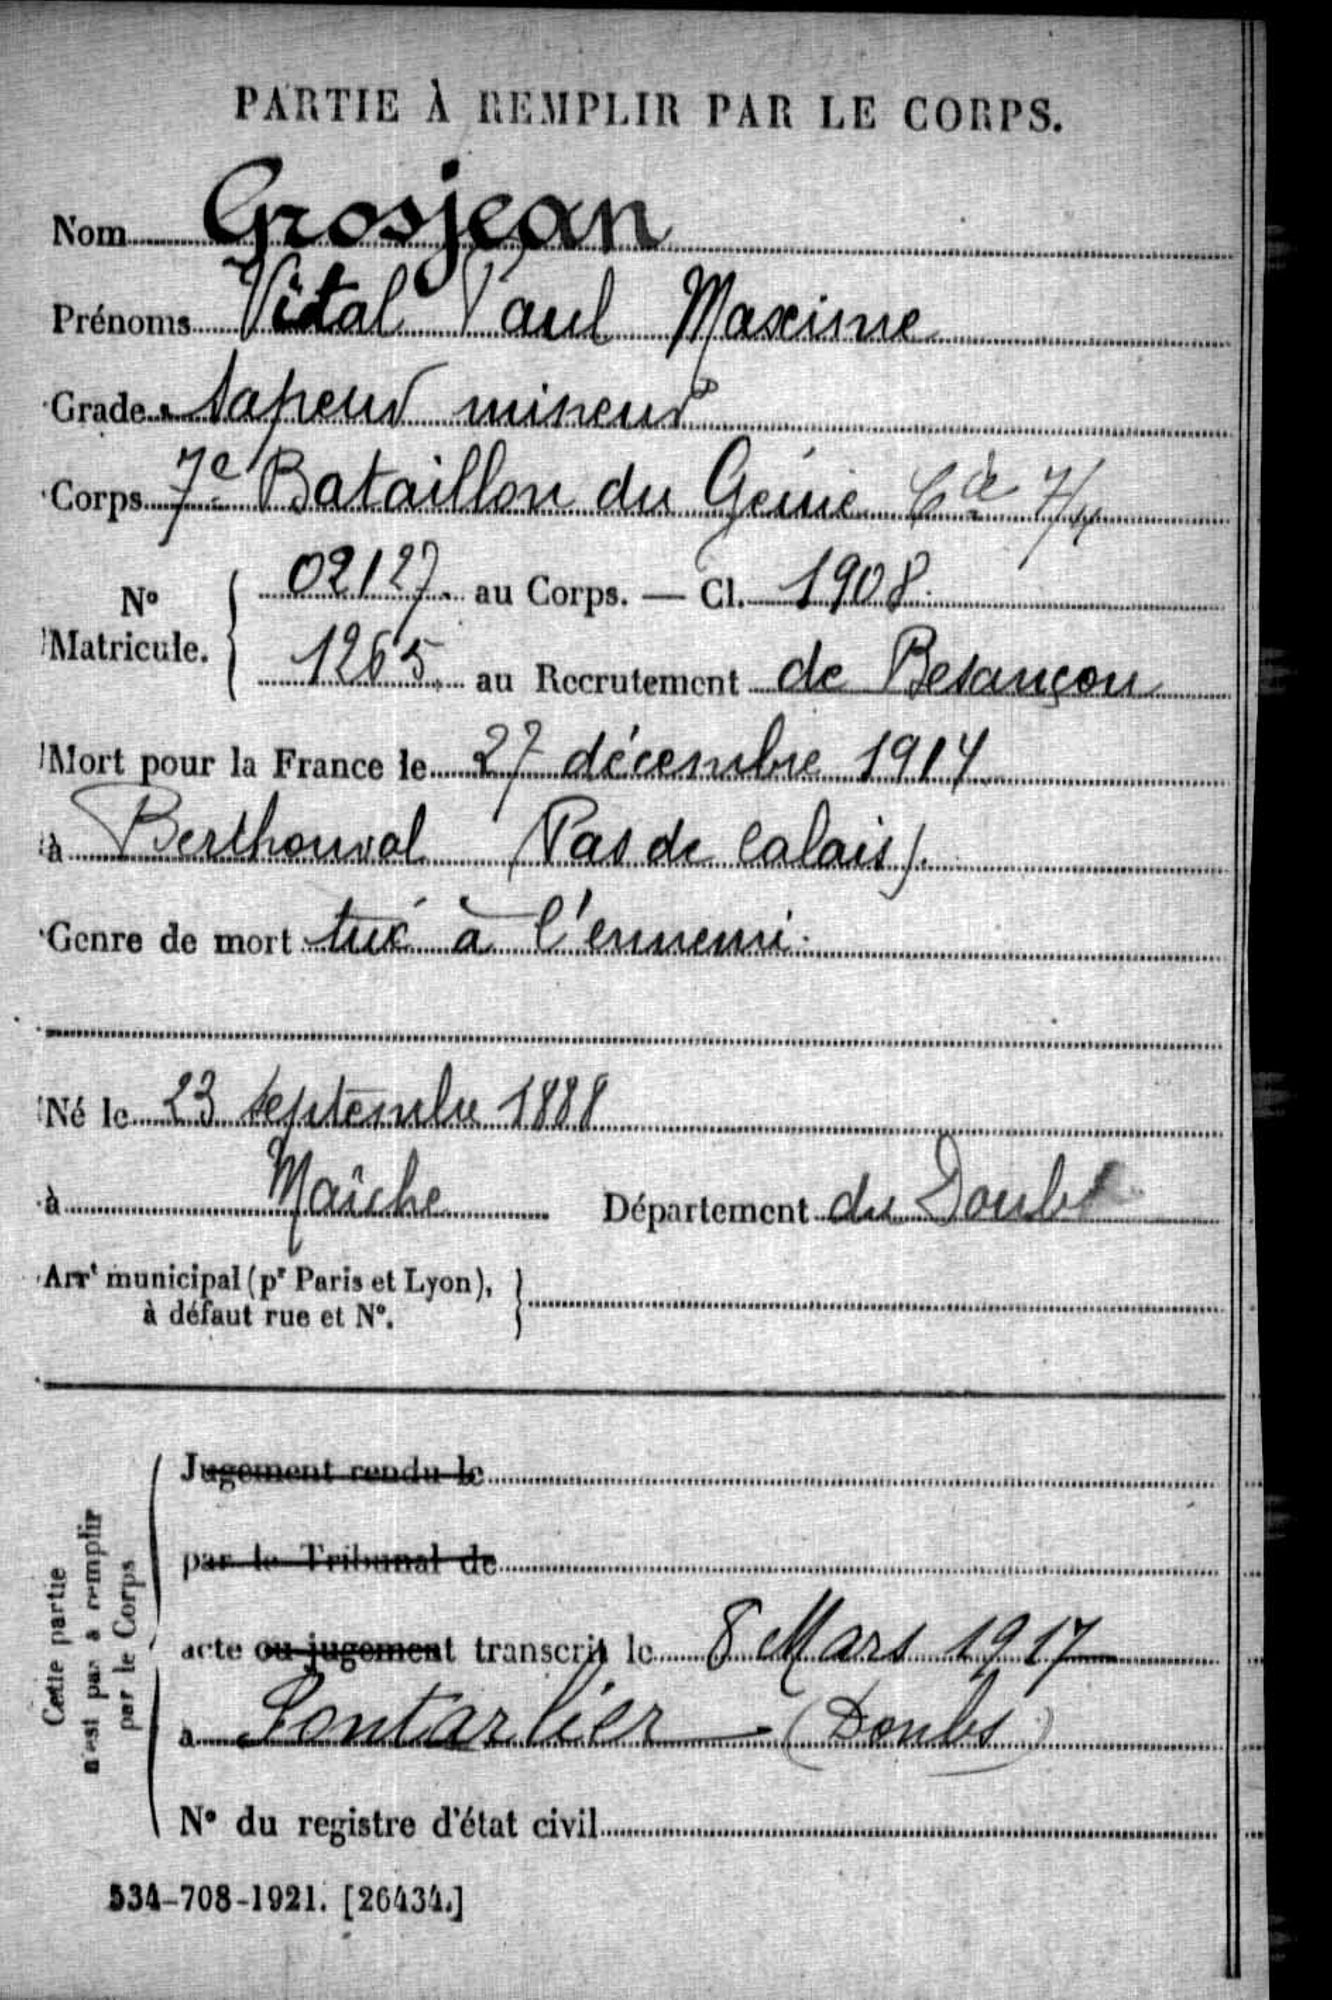 PARTIE À REMPLIR PAR LE CORPS.
Nom Grosjean
Prénoms Vital Paul Maxime
Grade sapeur mineur
Corps 7e Bataillon du Génie Cie 7/4
No Matricule. { 02127. au Corps. — Cl. 1908.
1265. au Recrutement de Besançon
Mort pour la France le 27 décembre 1914
à Berthonval (Pas de Calais).
Genre de mort tué à l'ennemi.
Né le 23 septembre 1888
à Maîche Département du Doubs
Arrt municipal (pr Paris et Lyon),
à défaut rue et No.
Jugement rendu le
par le Tribunal de
acte ou jugement transcrit le 8 Mars 1917
à Pontarlier (Doubs)
No du registre d'état civil
Cette partie
n'est pas à remplir
par le Corps
534-708-1921. [26434.]